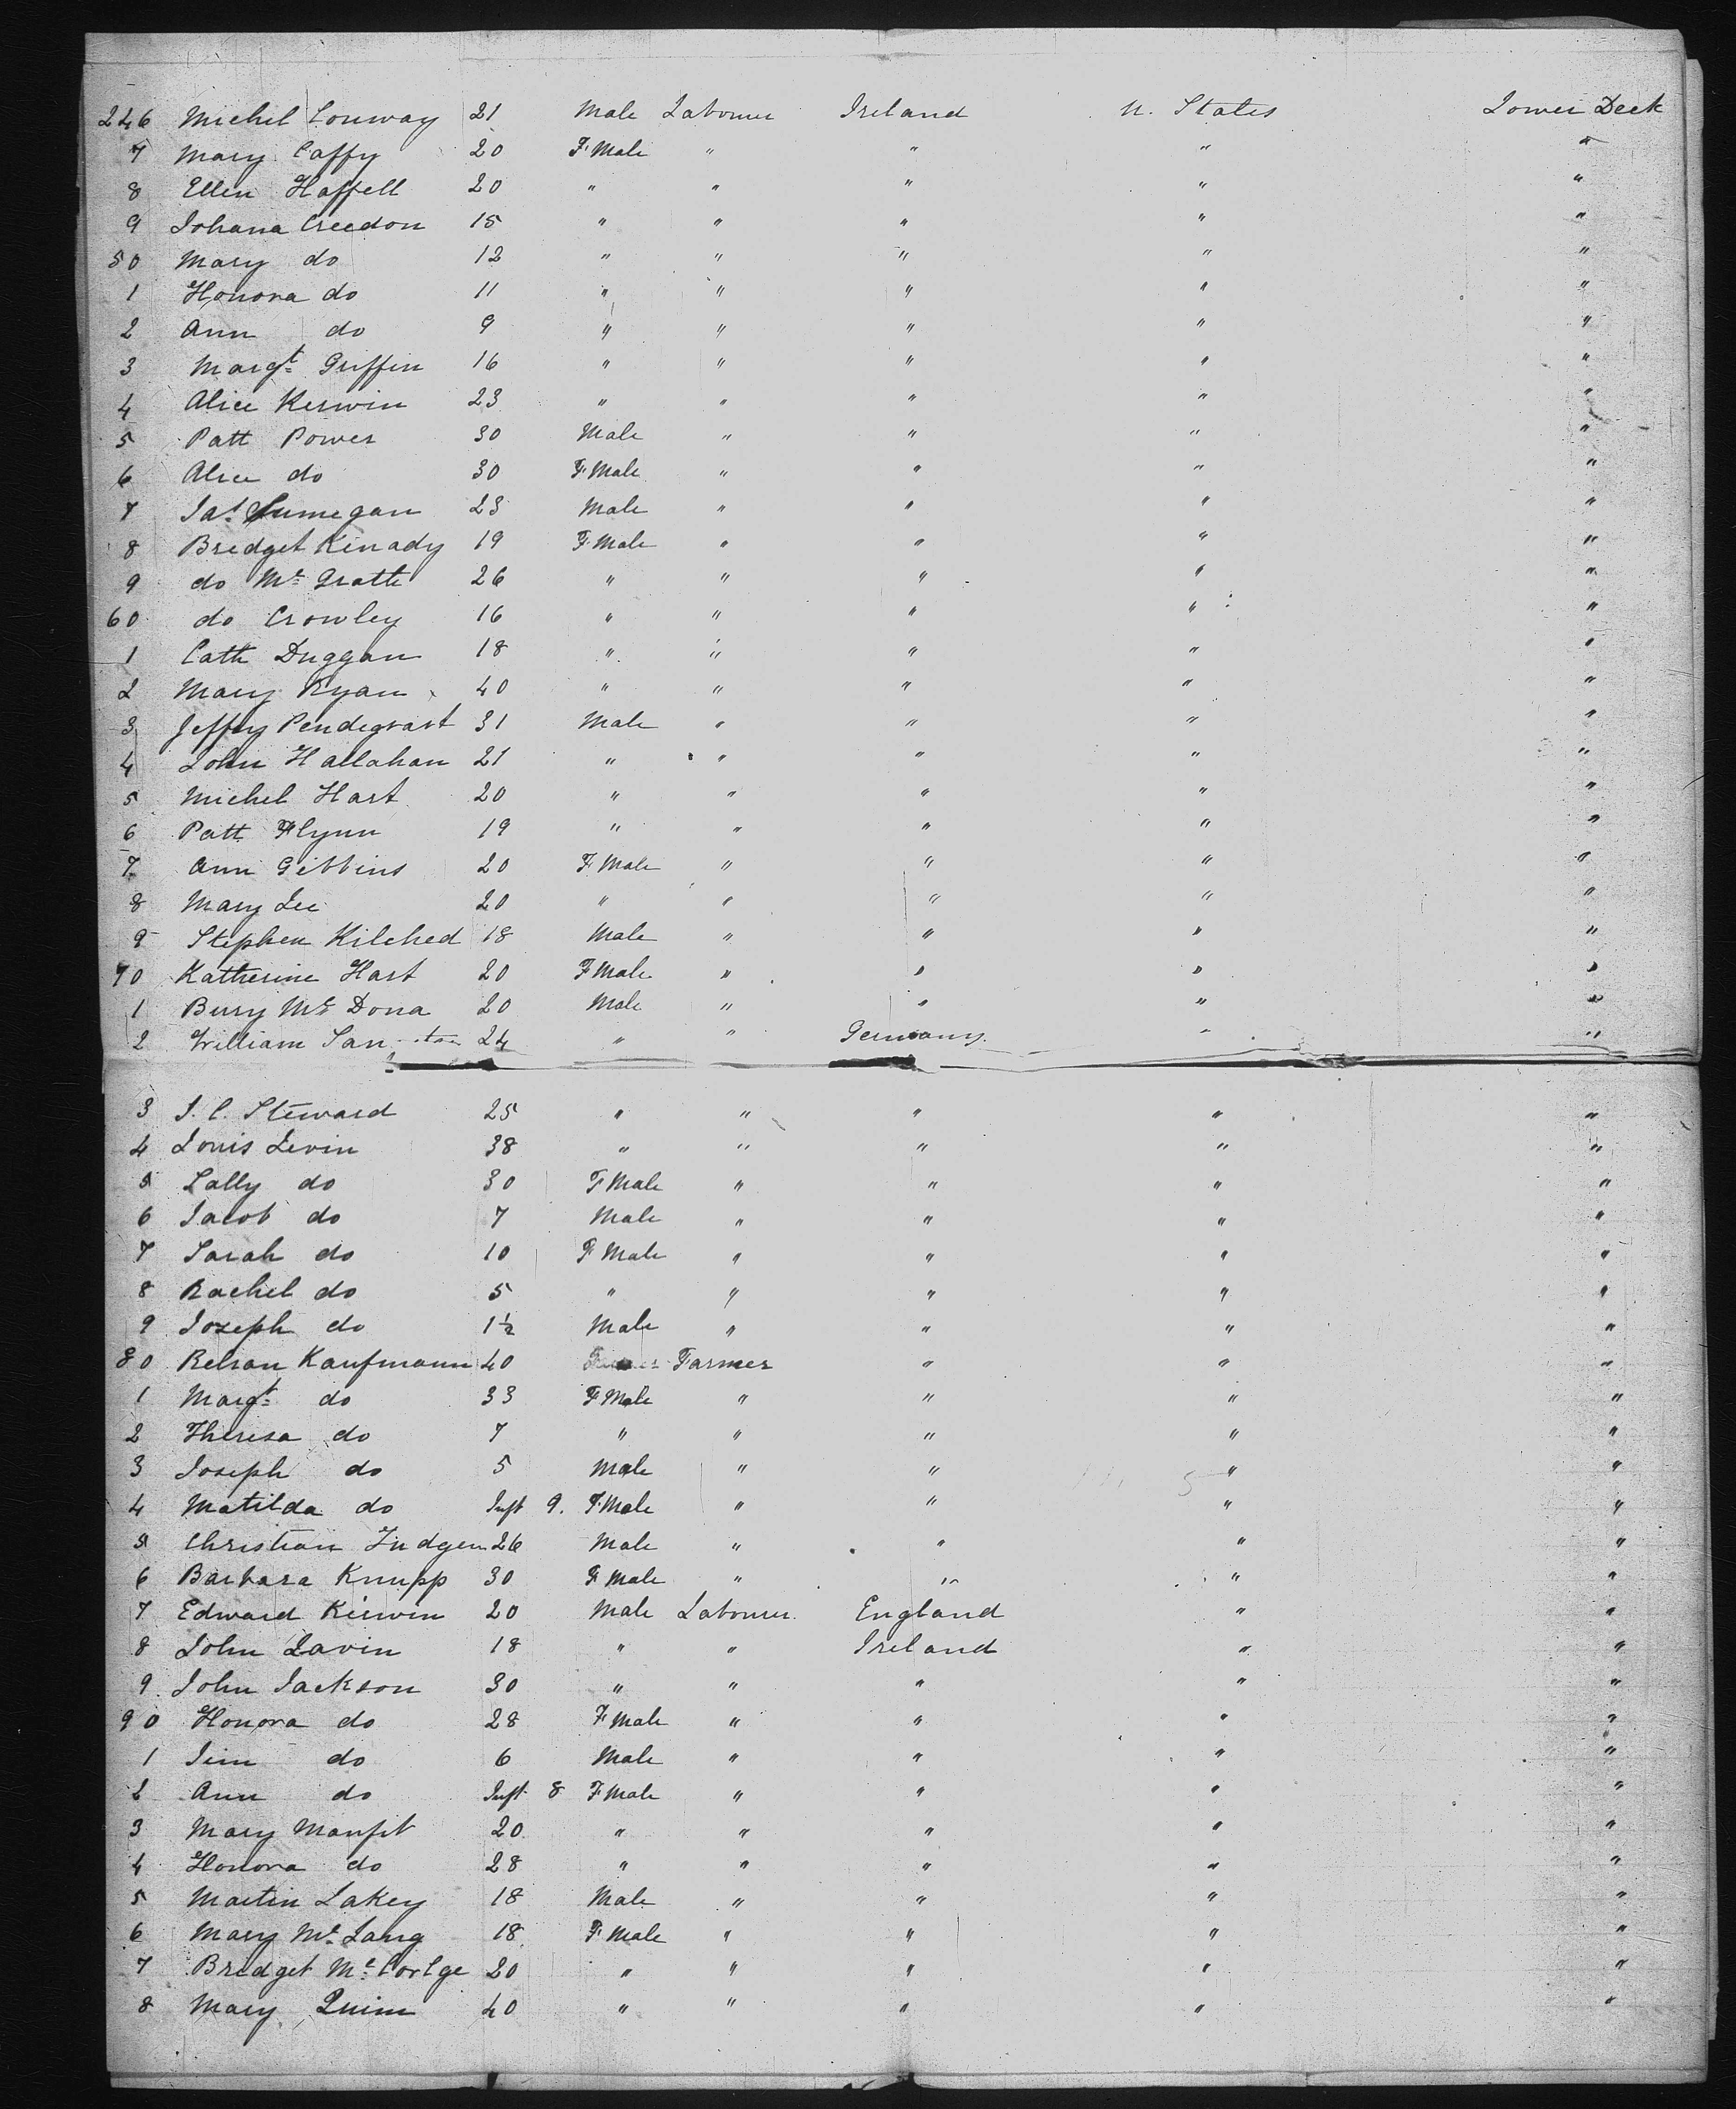 246 Michel Conway 21 Male Labourer Ireland U. States Lower Deck
7 Mary Caffy 20 F. Male " " " "
8 Ellen Haffell 20 " " " " "
9 Johana Creedon 15 " " " " "
50 Mary do 12 " " " " "
1 Honora do 11 " " " " "
2 Ann do 9 " " " " "
3 Margt Griffin 16 " " " " "
4 Alice Kerwin 23 " " " " "
5 Patt Power 30 Male " " " "
6 Alice do 30 F. Male " " " "
7 Jas 23 Male " " " "
8 Bridget Kenady 19 F. Male " " " "
9 do Mc Grath 26 " " " " "
60 do Crowley 16 " " " " "
1 Cath Duggan 18 " " " " "
2 Mary Ryan 40 " " " " "
3 Jeffry Pendegrast 31 Male " " " "
4 John Hallahan 21 " " " " "
5 Michel Hart 20 " " " " "
6 Patt Flynn 19 " " " " "
7 Ann Gibbins 20 F. Male " " " "
8 Mary Lee 20 " " " " "
9 Stephen Kilched 18 Male " " " "
70 Katherine Hart 20 F Male " " " "
1 Bury Mc Dona 20 Male " " " "
2 William 24 " " Germany " "
3 J. C. Steward 25 " " " " "
4 Louis Levin 38 " " " " "
5 Sally do 30 F Male " " " "
6 Jacob do 7 Male " " " "
7 Sarah do 10 F Male " " " "
8 Rachel do 5 " " " " "
9 Joseph do 1½ Male " " " "
80 Kaufmann 40 Farmer " " "
1 Margt do 33 F Male " " " "
2 Theresa do 7 " " " " "
3 Joseph do 5 Male " " " "
4 Matilda do Inft 9. F. Male " " " "
5 Christian 26 Male " " " "
6 Barbara Knupp 30 F Male " " " "
7 Edward Kirwin 20 Male Labourer England " "
8 John Lavin 18 " " Ireland " "
9 John Jackson 30 " " " " "
90 Honora do 28 F Male " " " "
1 Jim do 6 Male " " " "
2 Ann do Inft 8 F Male " " " "
3 Mary Manfit 20 " " " " "
4 Honora do 28 " " " " "
5 Martin Lakey 18 Male " " " "
6 Mary Mc Lang 18 F Male " " " "
7 Bridget Mc 20 " " " " "
8 Mary Quinn 40 " " " " "